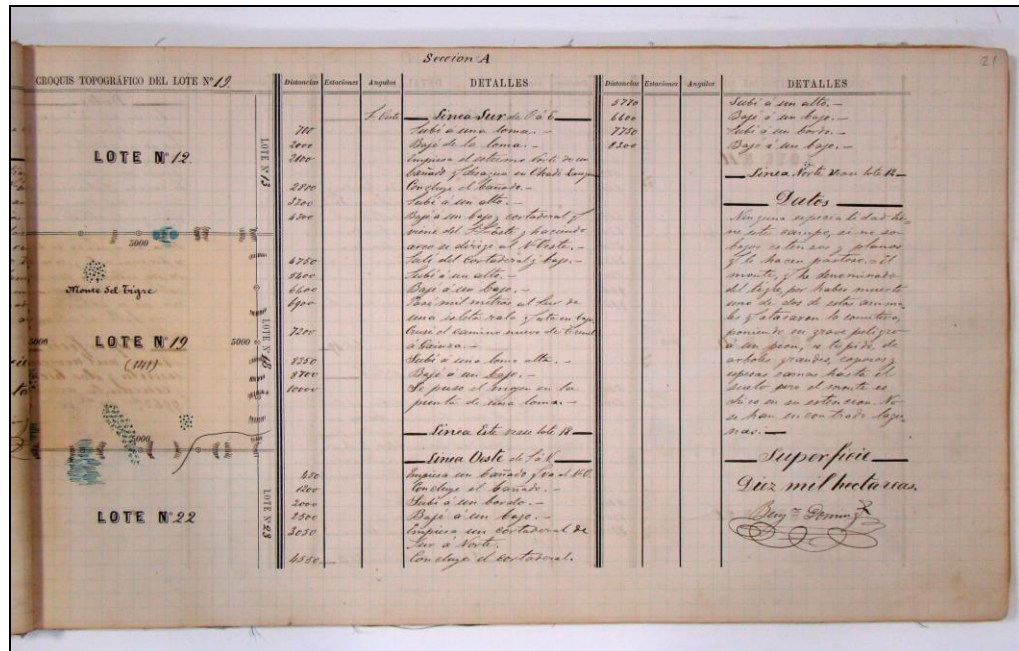 Seccion A
21
CROQUIS TOPOGRÁFICO DEL LOTE Nº 19.
LOTE Nº 12
LOTE Nº 13
5000
Monte del Tigre
5000
LOTE Nº 19
5000
LOTE Nº 18
5000
LOTE Nº 22
LOTE Nº 23
Distancias Estaciones Angulos DETALLES
Linea Sur de O á E
700 Subi á una loma.-
2000 Bajé de la loma.-
2100 Empieza el estremo Norte de un
bañado q' desagua en Chadi
2800 Concluye el bañado.-
3300 Subi á un alto.-
4300 Bajé á un bajo y cortaderal q'
viene del S.Oeste y haciendo
arco se dirige al N.Oeste.-
4750 Sali del Cortaderal y bajo.-
5400 Subi á un alto.-
6400 Bajé á un bajo.-
6900 Pasé mil metros al Sur de
una isleta rala q' está en bajo
7200 Crucé el camino nuevo de
á Gainza.-
8350 Subi á una loma alta.-
8700 Bajé á un bajo.-
10000 Se puso el mojon en la
punta de una loma.-
Linea Este vease lote 18
Linea Oeste de S á N.
450 Empieza un bañado q' va al N.O.
1200 Concluye el bañado.-
2000 Subi á un bordo.-
2500 Bajé á un bajo.-
3050 Empieza un cortaderal de
Sur á Norte.
4550 Concluye el cortaderal.
Distancias Estaciones Angulos DETALLES
5770 Subi á un alto.-
6600 Bajé á un bajo.-
7750 Subi á un bordo.-
8200 Bajé á un bajo.-
Linea Norte vease lote 12
Datos
Ninguna especialidad tie-
ne este campo, si no son
bajos estensos y planos
q' le hacen pastoso.- El
monte, q' he denominado
del tigre, por haber muerto
uno de dos de estos anima-
les q' atacaron la comitiva,
poniendo en grave peligro
á un peon, es tupido de
arboles grandes, coposos y
espesas ramas hasta el
suelo pero el monte es
chico en su estencion. No
se han encontrado lagu-
nas.-
Superficie
Diez mil hectareas.